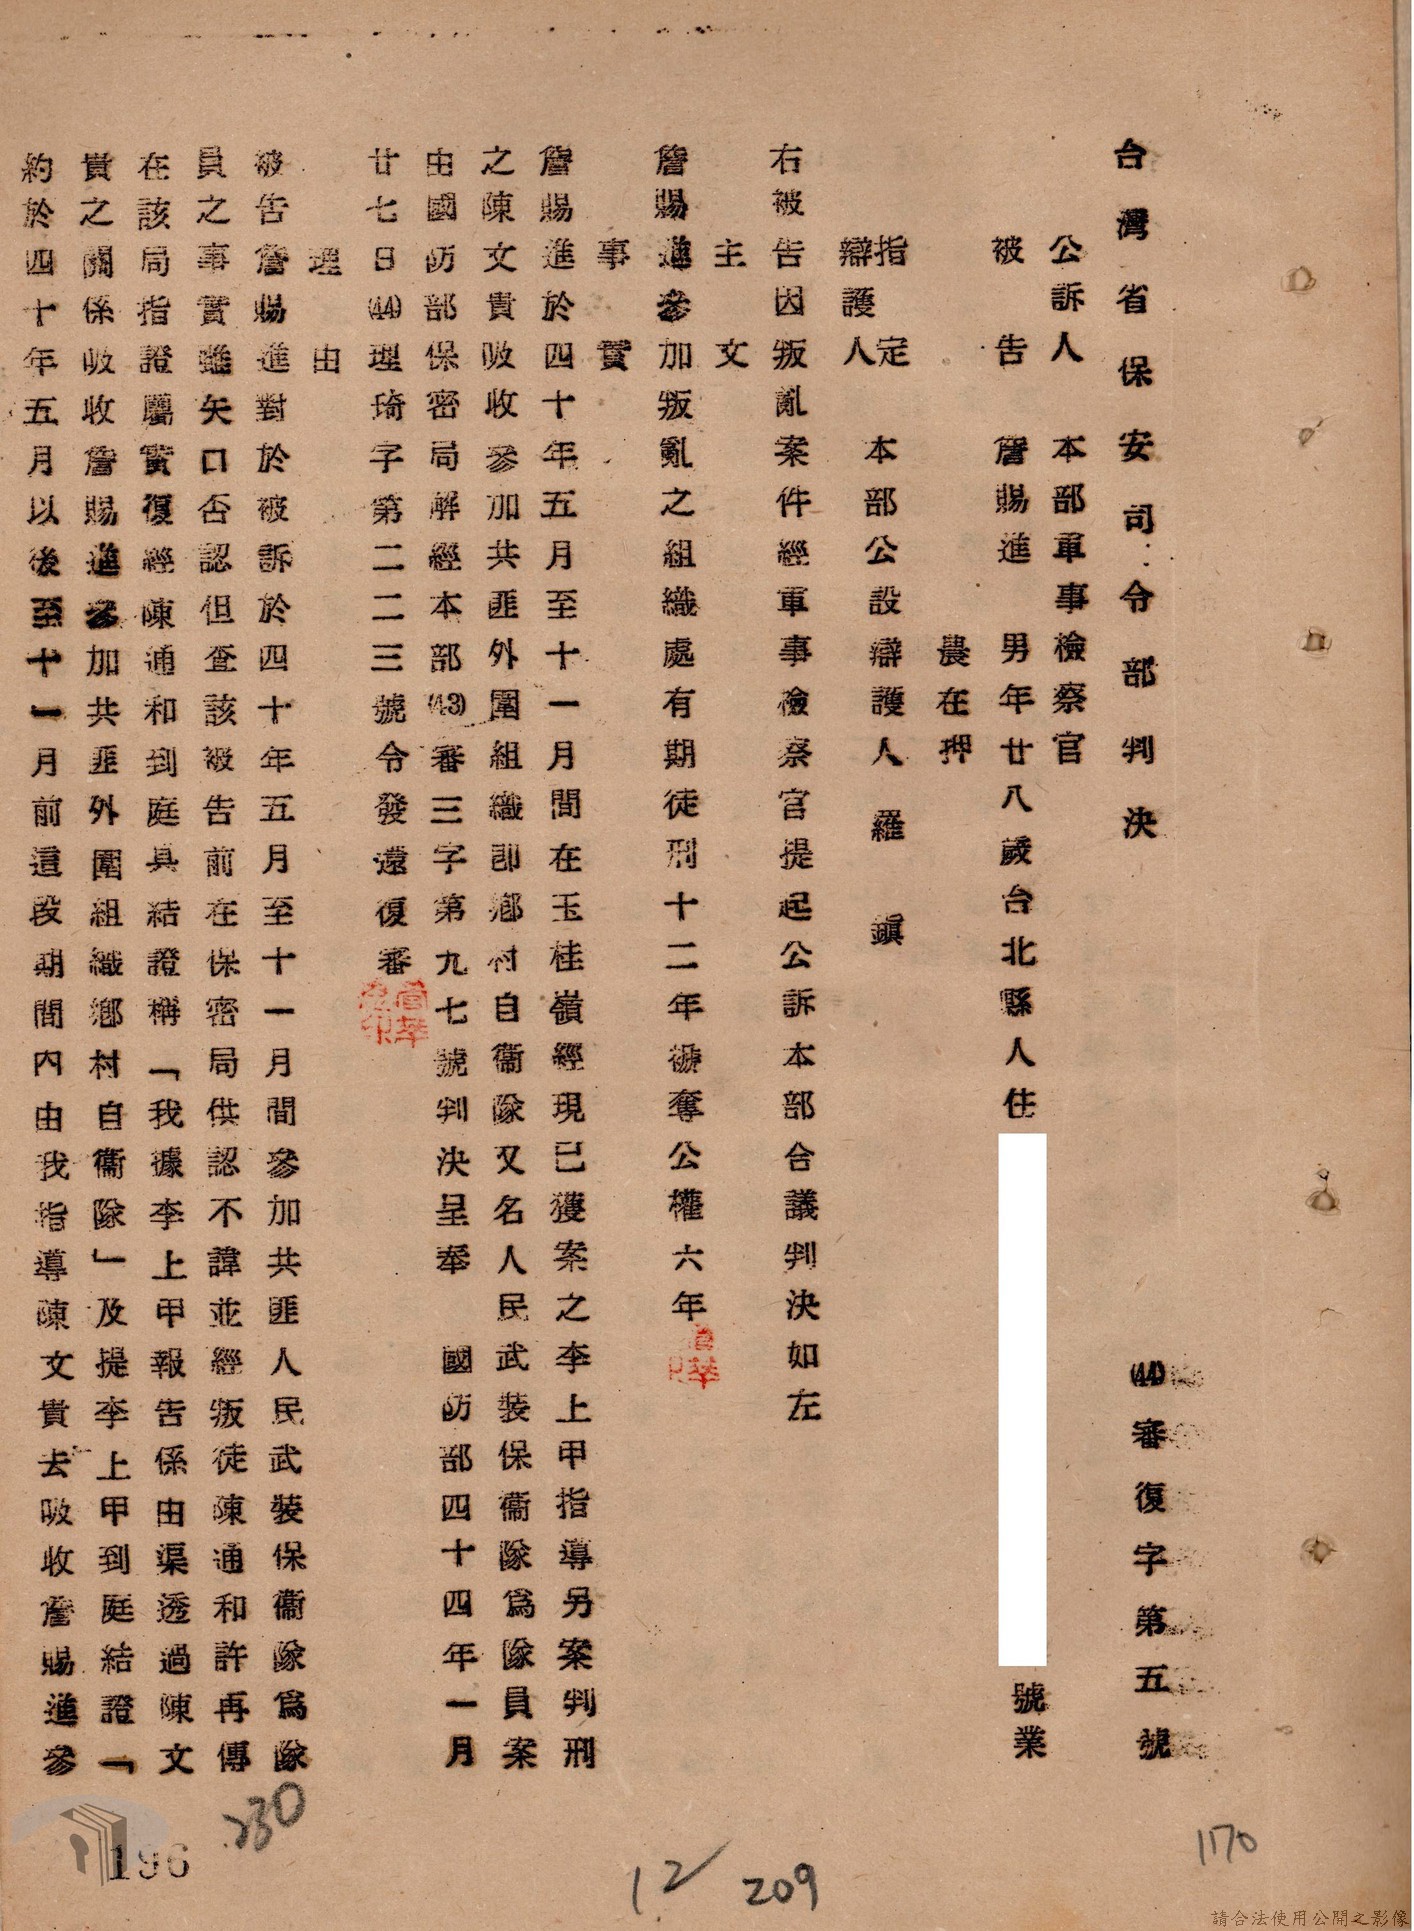 台灣省保安司令部判決
(44)審復字第五號
公訴人　本部軍事檢察官
被告　詹賜進　男年廿八歲台北縣人住　號業
農在押
指定
辯護人　本部公設辯護人羅鎮
右被告因叛亂案件經軍事檢察官提起公訴本部合議判決如左
主文
詹賜進參加叛亂之組織處有期徒刑十二年褫奪公權六年
事實
詹賜進於四十年五月至十一月間在玉桂嶺經現已獲案之李上甲指導另案判刑
之陳文貴吸收參加共匪外圍組織即鄉村自衞隊又名人民武裝保衞隊爲隊員案
由國防部保密局解經本部(43)審三字第九七號判決呈奉　國防部四十四年一月
廿七日(44)理琦字第二二三號令發還復審
理由
被告詹賜進對於被訴於四十年五月至十一月間參加共匪人民武裝保衞隊爲隊
員之事實雖矢口否認但查該被告前在保密局供認不諱並經叛徒陳通和許再傳
在該局指證屬實復經陳通和到庭具結證稱「我據李上甲報告係由渠透過陳文
貴之關係吸收詹賜進參加共匪外圍組織鄉村自衞隊」及提李上甲到庭結證「
約於四十年五月以後至十一月前這段期間內由我指導陳文貴去吸收詹賜進參
230
196
12
209
1170
請合法使用公開之影像